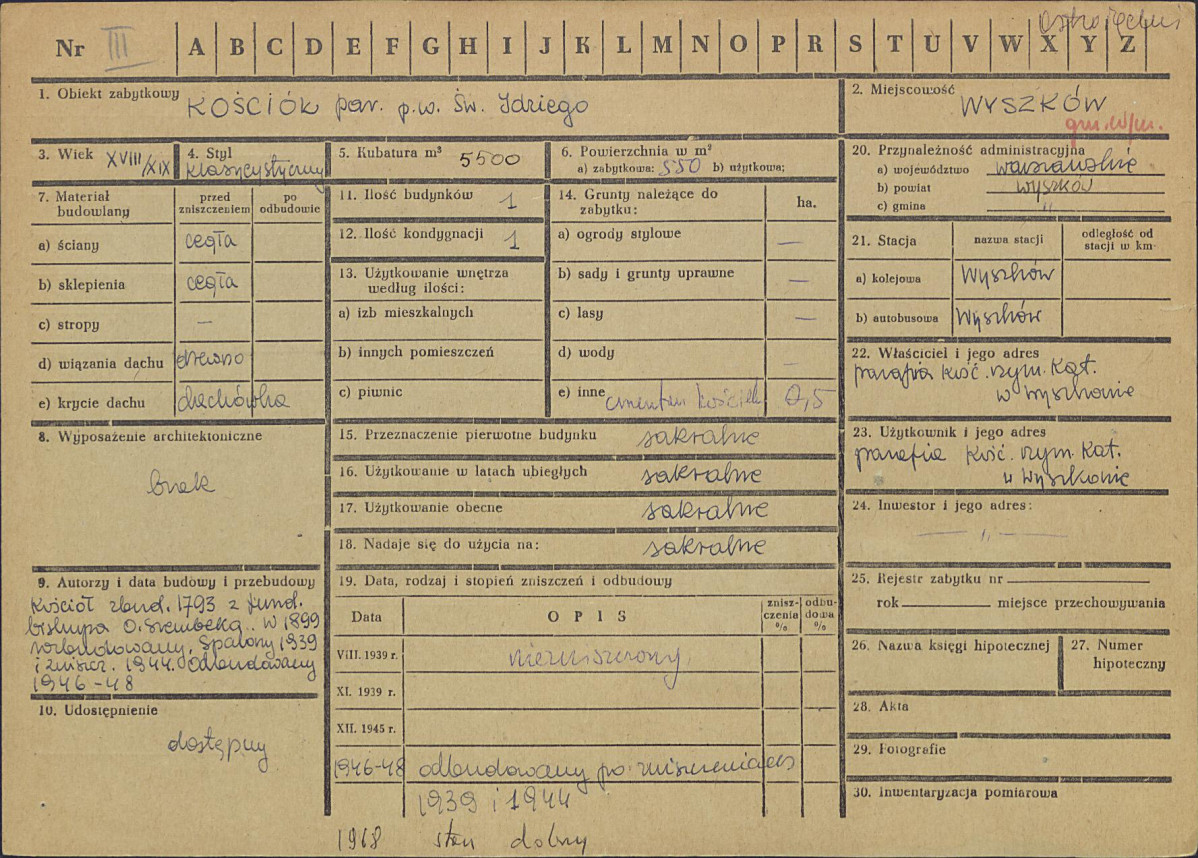 Ostrołęckie
Nr III A B C D E F G H I J K L M N O P R S T U V W X Y Z
1. Obiekt zabytkowy KOŚCIÓŁ par. p.w. Św. Idziego
2. Miejscowość WYSZKÓW
gm. w/m.
3. Wiek XVIII/XIX
4. Styl klasycystyczny
5. Kubatura m³ 5500
6. Powierzchnia w m²
a) zabytkowa: 550 b) użytkowa:
7. Materiał budowlany
przed zniszczeniem
po odbudowie
a) ściany cegła
b) sklepienia cegła
c) stropy —
d) wiązania dachu drewno
e) krycie dachu dachówka
8. Wyposażenie architektoniczne
brak
9. Autorzy i data budowy i przebudowy
Kościół zbud. 1793 z fund.
biskupa O. Szembeka. W 1899
rozbudowany, Spalony 1939
i zniszcz. 1944. Odbudowany
1946-48
10. Udostępnienie
dostępny
11. Ilość budynków 1
12. Ilość kondygnacji 1
13. Użytkowanie wnętrza
według ilości:
a) izb mieszkalnych
b) innych pomieszczeń
c) piwnic
14. Grunty należące do
zabytku: ha.
a) ogrody stylowe —
b) sady i grunty uprawne —
c) lasy —
d) wody —
e) inne cmentarz kościeln 0,5
15. Przeznaczenie pierwotne budynku sakralne
16. Użytkowanie w latach ubiegłych sakralne
17. Użytkowanie obecne sakralne
18. Nadaje się do użycia na: sakralne
19. Data, rodzaj i stopień zniszczeń i odbudowy
Data
O P I S
znisz-
czenia
%
odbu-
dowa
%
VIII. 1939 r. niezniszczony
XI. 1939 r.
XII. 1945 r.
1946-48 odbudowany po zniszczeniach
1939 i 1944
1968 stan dobry
20. Przynależność administracyjna
a) województwo warszawskie
b) powiat wyszków
c) gmina "
21. Stacja
nazwa stacji
odległość od
stacji w km-
a) kolejowa Wyszków
b) autobusowa Wyszków
22. Właściciel i jego adres
parafia kość. rzym. kat.
w Wyszkowie
23. Użytkownik i jego adres
parafia kość. rzym. kat.
w Wyszkowie
24. Inwestor i jego adres:
— " —
25. Rejestr zabytku nr
rok miejsce przechowywania
26. Nazwa księgi hipotecznej
27. Numer
hipoteczny
28. Akta
29. Fotografie
30. Inwentaryzacja pomiarowa